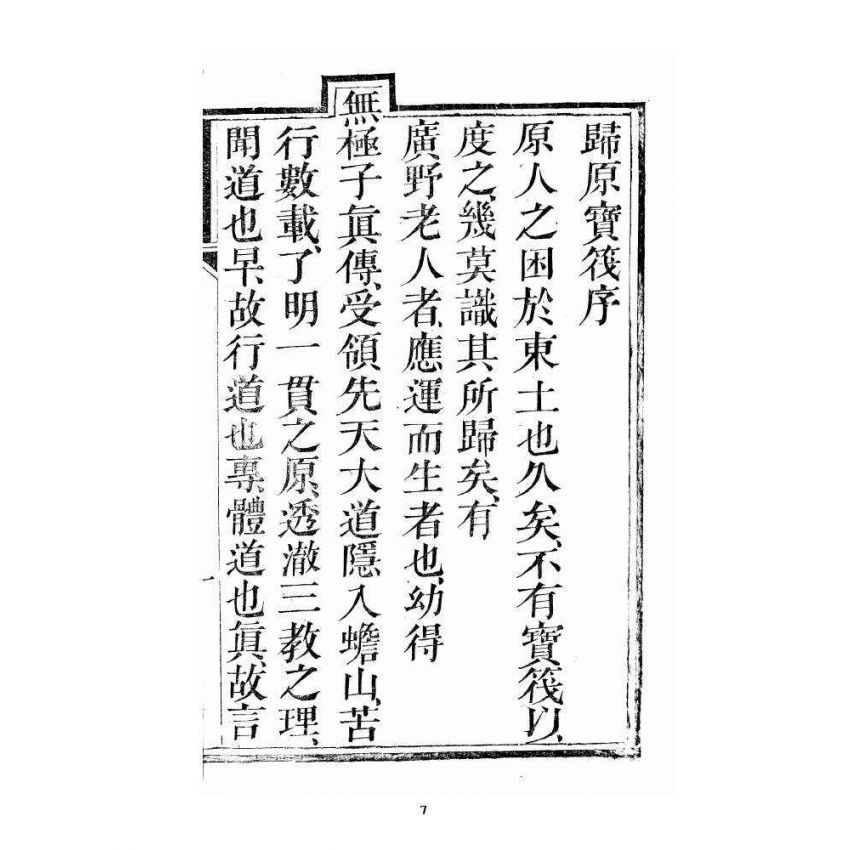 歸原寶筏序
原人之困於東土也久矣、不有寶筏以、
度之、幾莫識其所歸矣、有
廣野老人者、應運而生者也、幼得
無極子眞傳、受領先天大道隱入蟾山、苦
行數載、了明一貫之原、透澈三教之理、
聞道也早、故行道也專、體道也眞、故言
一
7